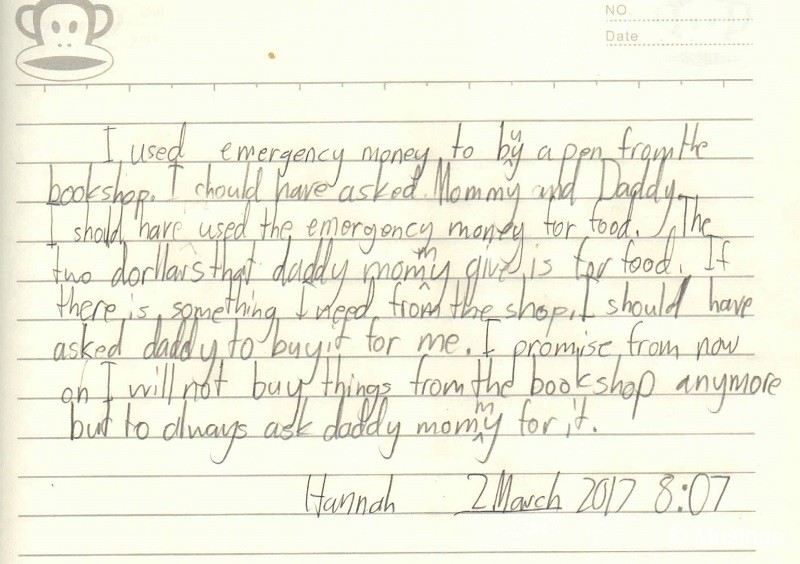 NO.
Date
I used emergency money to buy a pen from the
bookshop. I should have asked Mommy and Daddy.
I should have used the emergency money for food. The
two dorllars that daddy mommy give is for food. If
there is something I need from the shop, I should have
asked daddy to buy it for me. I promise from now
on I will not buy things from the bookshop anymore
but to always ask daddy mommy for it.
Hannah 2 March 2017 8:07